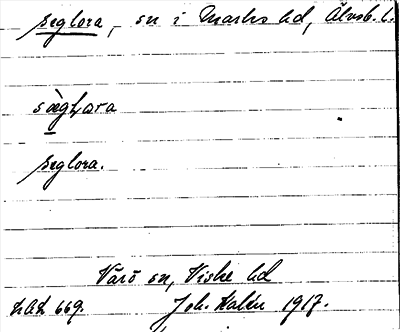 seglora, sn i Marks hd, Älvsb. l.
sæglɷra
seglora.
Värö sn, Viske hd
LAL 669. Joh. Kalén 1917.